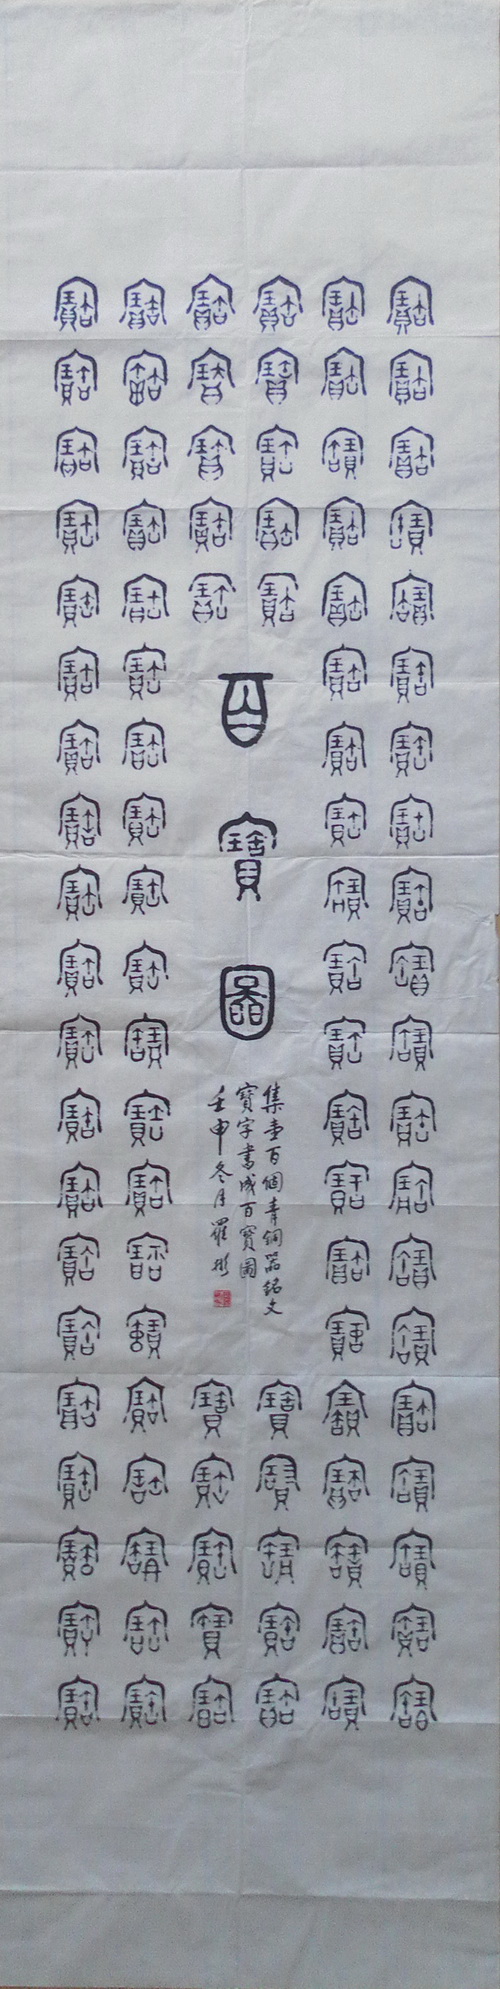 寶寶寶寶寶寶寶寶寶寶寶寶寶寶寶寶寶寶寶寶
寶寶寶寶寶寶寶寶寶寶寶寶寶寶寶寶寶寶寶寶
寶寶寶寶寶
寶寶寶寶寶
百寶圖
集壹百個青銅器銘文
寶字書成百寶圖
壬申冬月羅彬
寶寶寶寶寶
寶寶寶寶寶
寶寶寶寶寶寶寶寶寶寶寶寶寶寶寶寶寶寶寶寶
寶寶寶寶寶寶寶寶寶寶寶寶寶寶寶寶寶寶寶寶